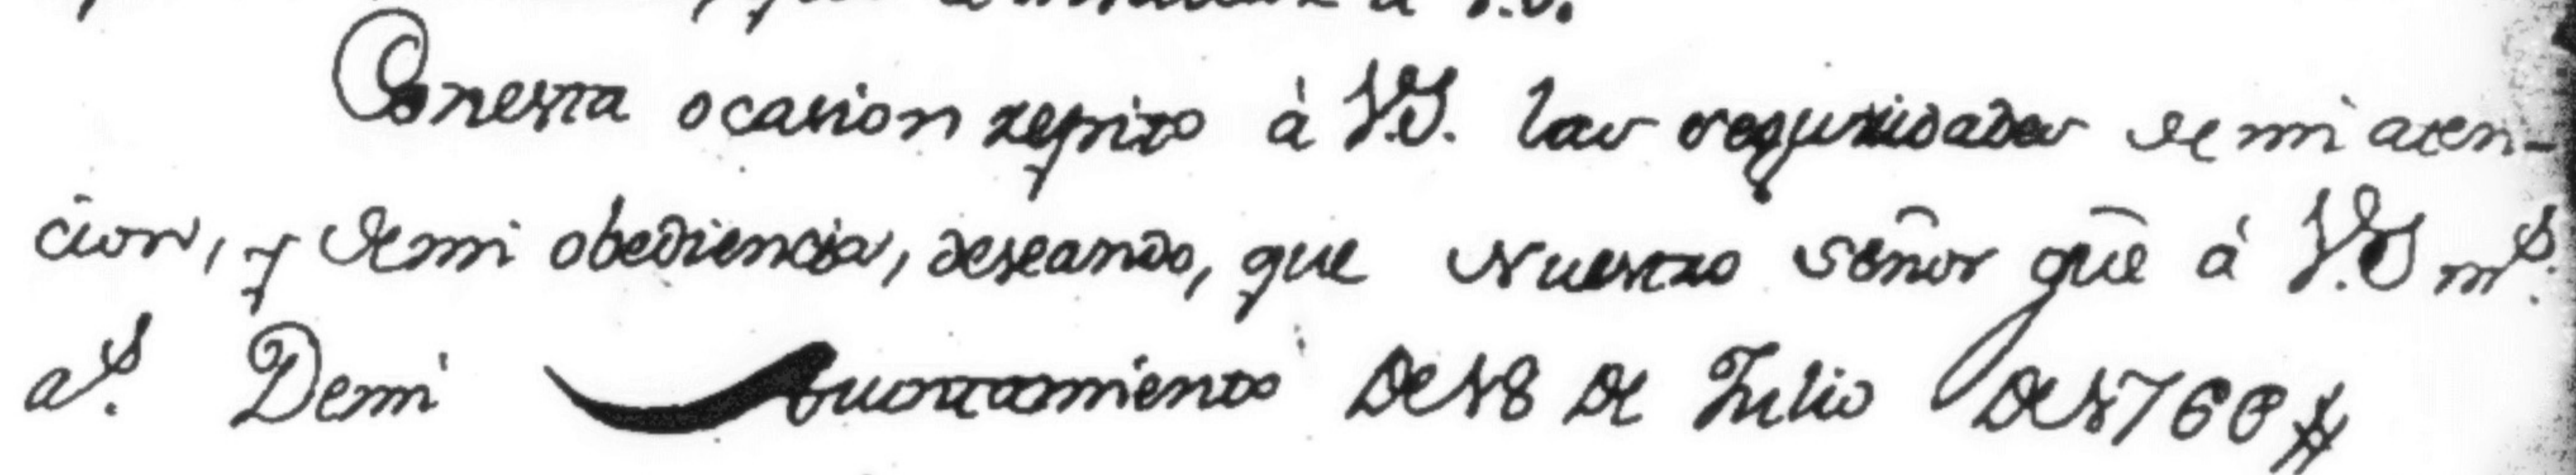 Conesta ocasion repito à V.S. las seguridades de mi aten-
cion, y demi obediencia, deseando, que Nuestro Señor gūe à V.S m.s
a.s Demi Ayuntamiento De 18 De Julio De 1760